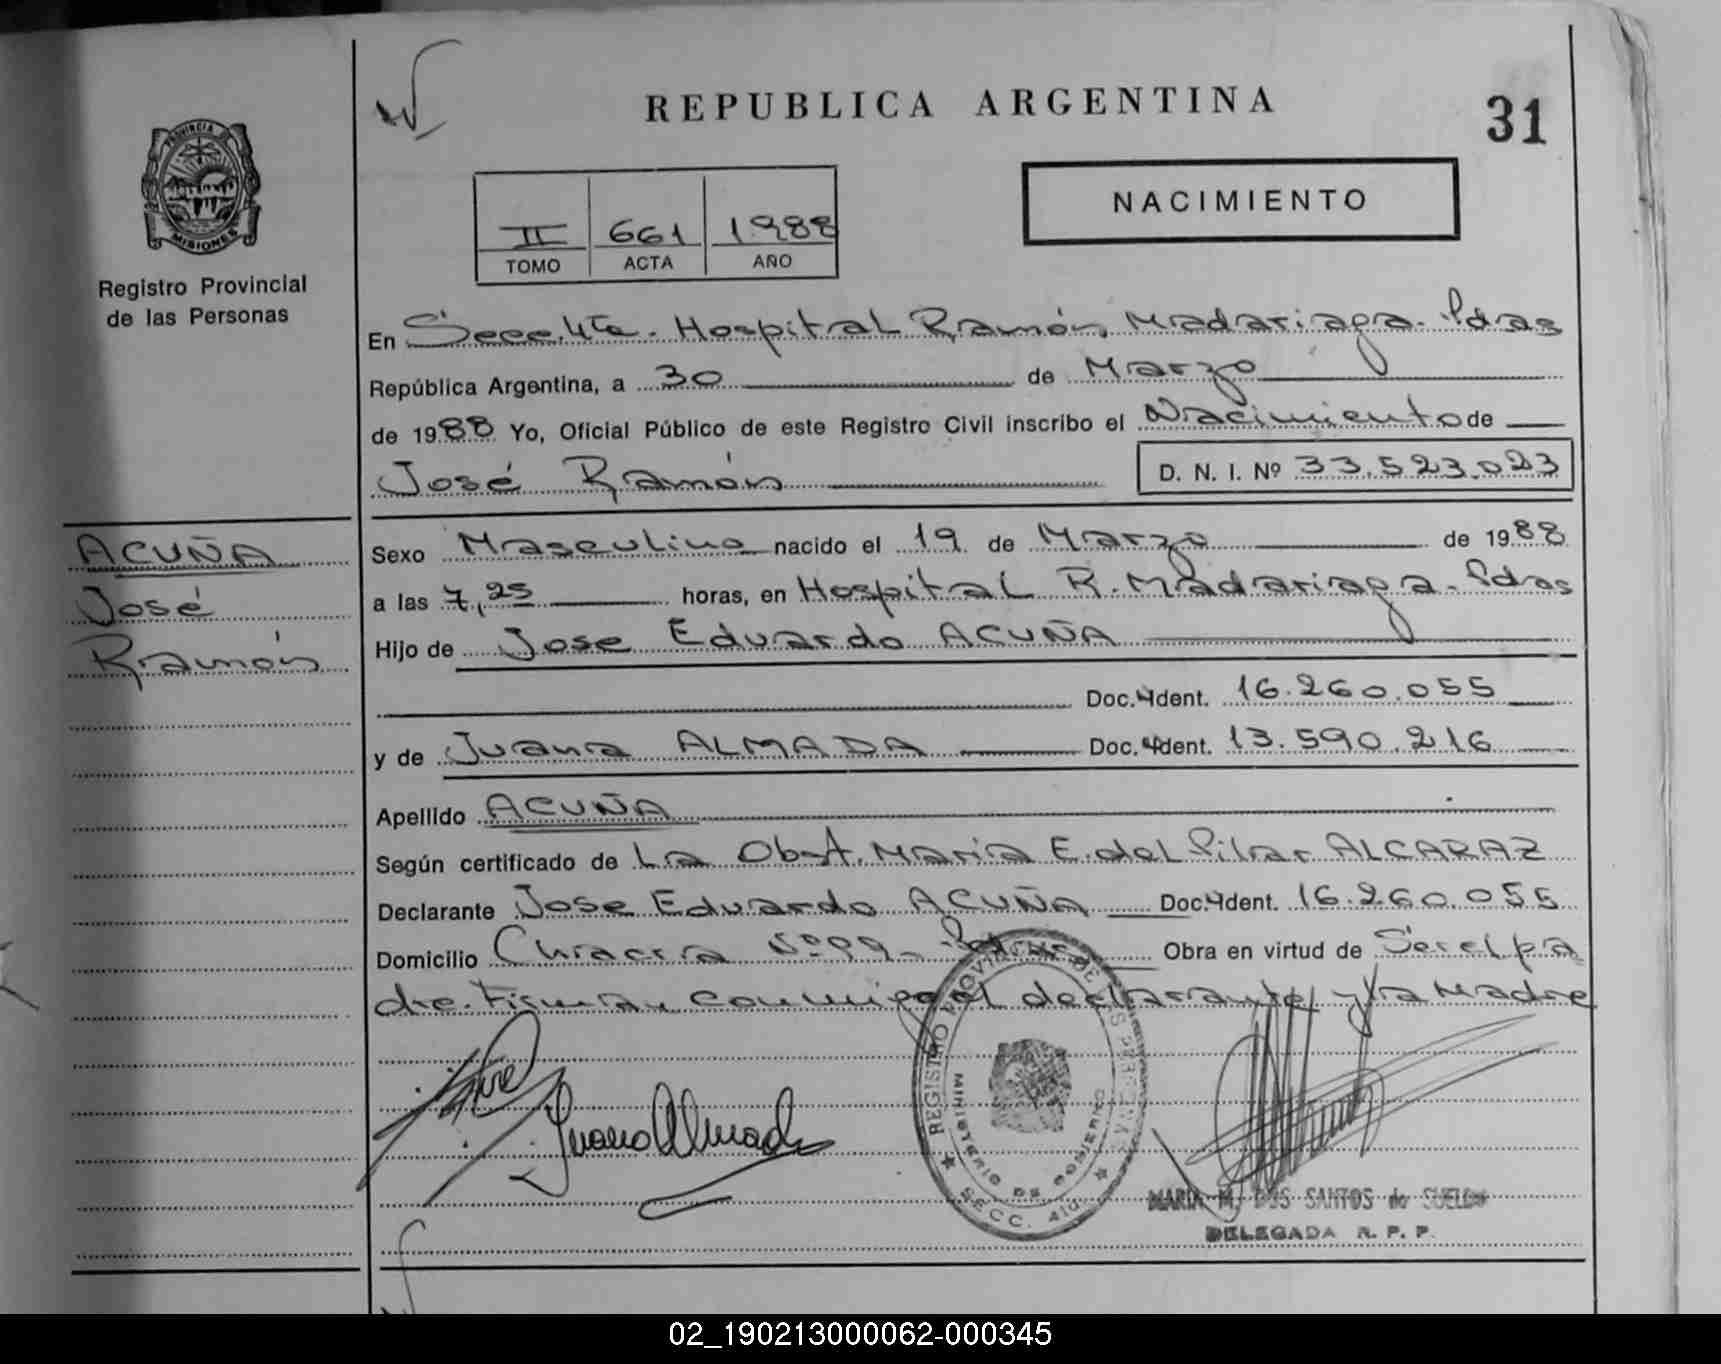 REPUBLICA ARGENTINA
31
PROVINCIA DE
MISIONES
Registro Provincial
de las Personas
NACIMIENTO
II 661 1988
TOMO ACTA AÑO
En Secc. 4ta. Hospital Ramón Madariaga. Pdas
República Argentina, a 30 de Marzo
de 1988 Yo, Oficial Público de este Registro Civil inscribo el Nacimiento de
José Ramón D. N. I. Nº 33.523.023
ACUÑA
José
Ramón
Sexo Masculino nacido el 19 de Marzo de 1988
a las 7,25 horas, en Hospital R. Madariaga. Pdas
Hijo de Jose Eduardo ACUÑA
Doc. Ident. 16.260.055
y de Juana ALMADA Doc. Ident. 13.590.216
Apellido ACUÑA
Según certificado de La Obst. María E. del Pilar ALCARAZ
Declarante Jose Eduardo ACUÑA Doc. Ident. 16.260.055
Domicilio Chacra Nº 99- Pdas Obra en virtud de Ser el pa
dre. Firman conmigo el declarante y la Madre
Juana Almada
REGISTRO PROVINCIAL DE LAS PERSONAS
MINISTERIO DE GOBIERNO
SECC. 4ta.
MARIA M. DOS SANTOS de SUELDO
DELEGADA R. P. P.
02_190213000062-000345